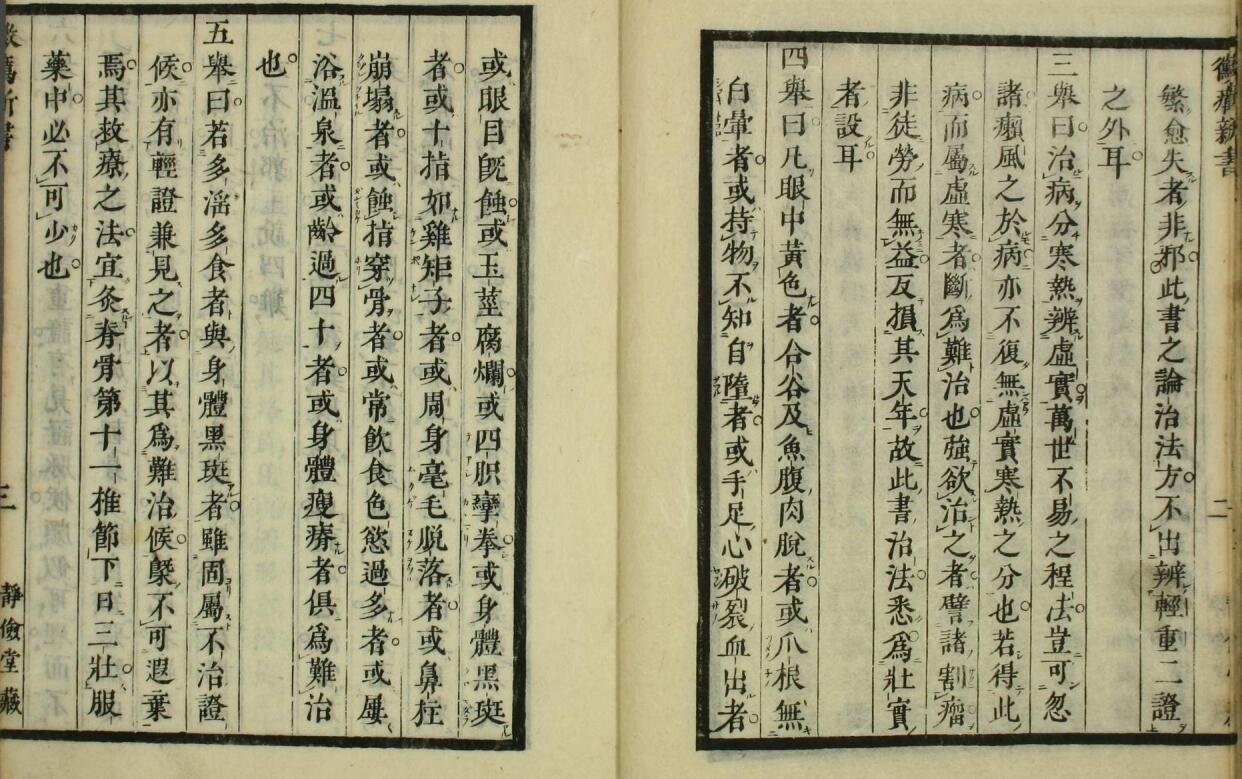 繁愈失者非邪此書之論治法方不出辨輕重二證
之外耳
三舉曰治病分寒熱辨虛實萬世不易之程法豈可忽
諸癩風之於病亦不復無虛實寒熱之分也若得此
病而屬虛寒者斷爲難治也強欲治之者譬諸割瘤
非徒勞而無益反損其天年故此書治法悉爲壯實
者設耳
四舉曰凡眼中黃色者合谷及魚腹肉脫者或爪根無
白暈者或持物不知自墮者或手足心破裂血出者
或眼目既蝕或玉莖腐爛或四肢攣拳或身體黑斑
者或十指如雞距子者或周身毫毛脫落者或鼻柱
崩塌者或蝕指穿骨者或常飲食色慾過多者或屢
浴溫泉者或齡過四十者或身體瘦瘠者俱爲難治
也
五舉曰若多淫多食者與身體黑斑者雖固屬不治證
候亦有輕證兼見之者以其爲難治候槩不可遐棄
焉其救療之法宜灸脊骨第十一椎節下日三壯服
藥中必不可少也
三
靜儉堂藏